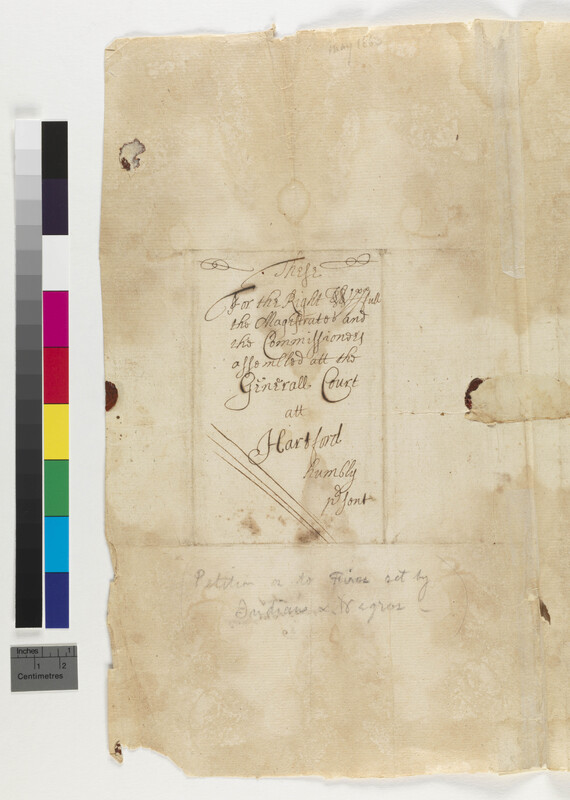 may
These
For the Right Worpfull
the Magistrates and
the Commissioners
assembled att the
Generall Court
att
Hartford
humbly
psent
Petition as to Fires set by
Indians & Negros
Inches 1
1 2
Centimetres